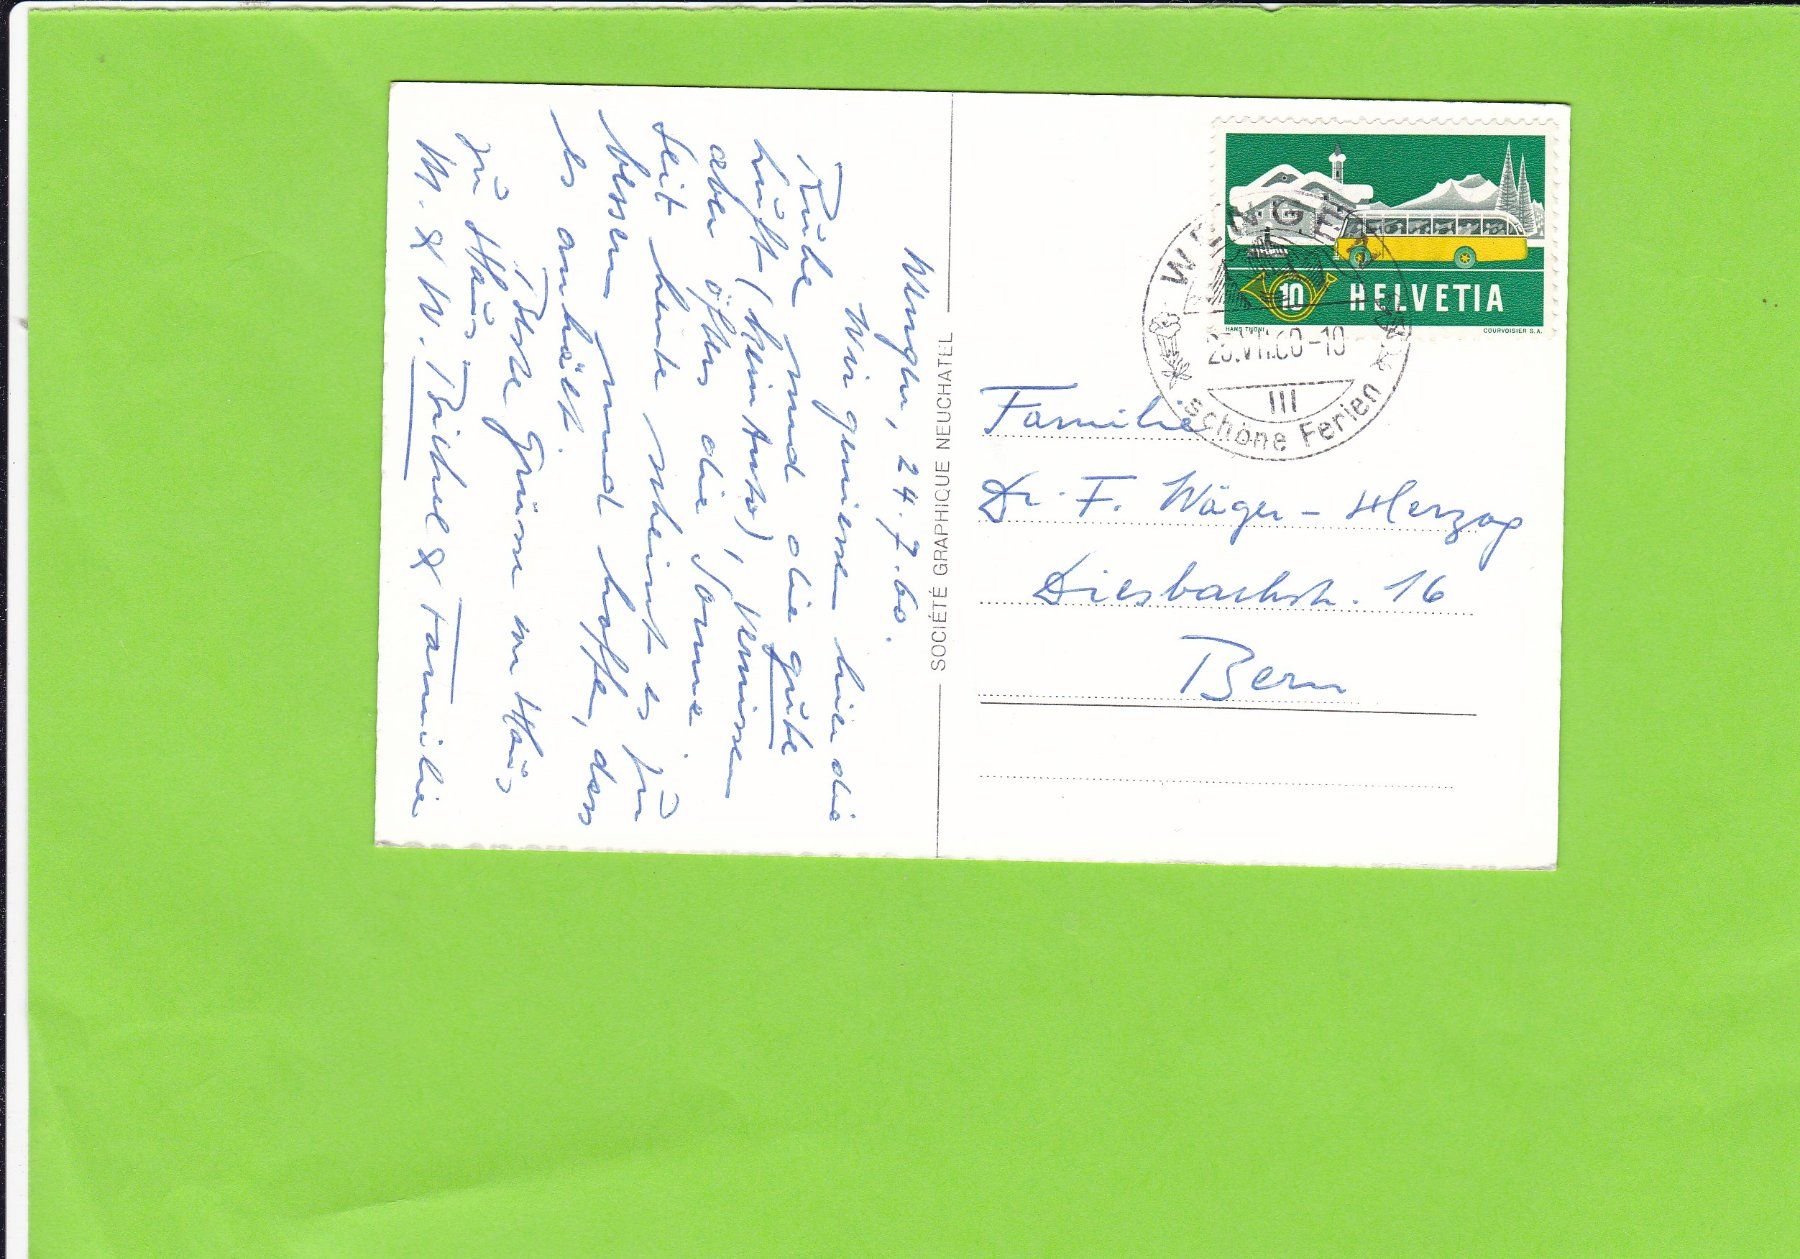 Wengen, 24.7.60.
Wir geniessen hier die
Ruhe und die gute
Luft (kein Auto), vermissen
aber öfters die Sonne
Seit heute scheint es zu
bessern und hoffe, dass
es anhält.
Beste Grüsse von Haus
zu Haus
M. & W. & Familie
SOCIÉTÉ GRAPHIQUE NEUCHATEL
10 HELVETIA
HANS THÖNI
COURVOISIER S.A.
WENGEN
25.VII.60-10
III
schöne Ferien
Familie
Dr. F. Wäger-Herzog
Diesbachstr. 16
Bern